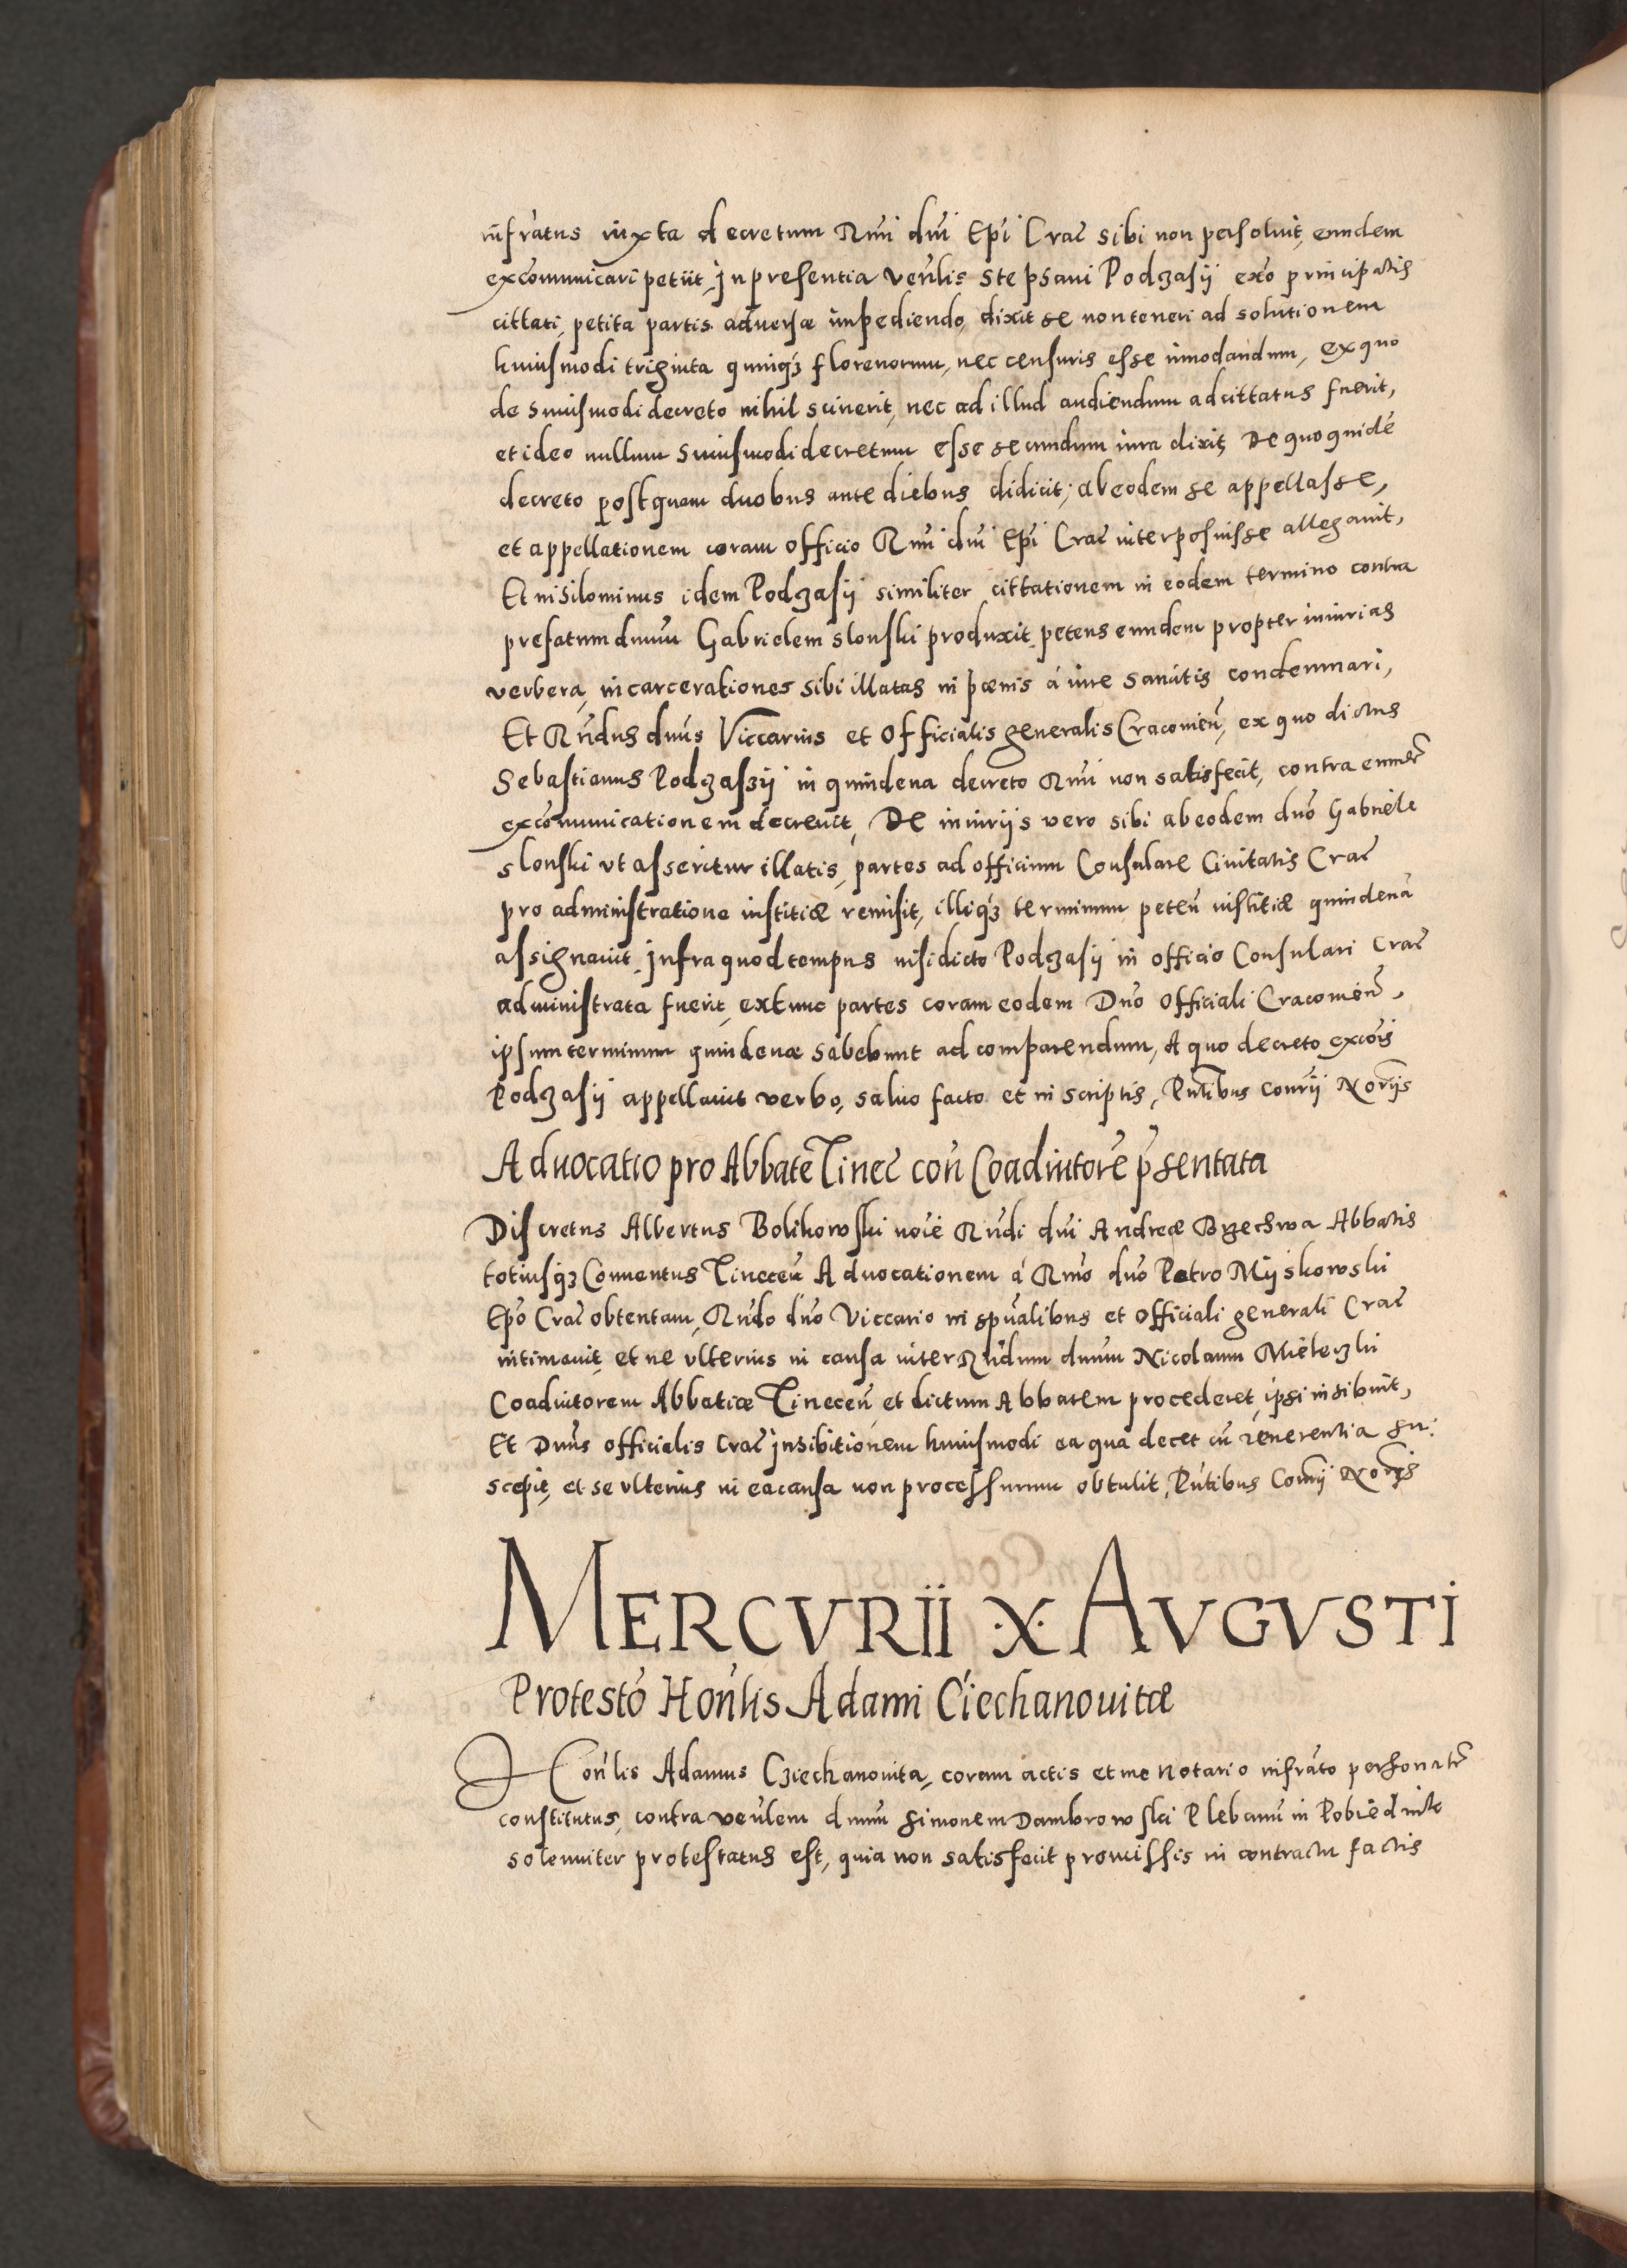 infratus iuxta decretum Rmi dni Epi Crac sibi non persoluit, eundem
excomunicari petiit, Jn presentia venlis Stephani Podgasii exo principalis
cittati, petita partis aduersæ impediendo, dixit se non teneri ad solutionem
huiusmodi triginta quinq3 florenorum, nec censuris esse innodandum, ex quo
de huiusmodi decreto nihil sciuerit, nec ad illud audiendum adcittatus fuerit,
et ideo nullum huiusmodi decretum esse secundum iura dixit, De quo quidé
decreto postquam duobus ante diebus didicit, ab eodem se appellasse,
et appellationem coram officio Rmi dni Epi Crac interposuisse allegauit,
Et nihilominus idem Podgasii similiter cittationem in eodem termino contra
prefatum dnum Gabrielem Slonski produxit, petens eundem propter iniurias
verbera, incarcerationes sibi illatas in pœnis á iure sancitis condemnari,
Et Rndus dnus Viccarius et Officialis generalis Cracouien, ex quo dictus
Sebastianus Podgaszii in quindena decreto Rmi non satisfecit, contra eum
excomunicationem decreuit, De iniuriis vero sibi ab eodem dno Gabriele
Slonski vt asseritur illatis, partes ad officium Consulare Ciuitatis Crac
pro administratione iustitiæ remisit, illiq3 terminum peten iustitiæ quindena
assignauit, Jnfra quod tempus nisi dicto Podgasii in officio Consulari Crac
administrata fuerit, extunc partes coram eodem Dno Officiali Cracouien,
ipsum terminum quindenæ habebunt ad comparendum, A quo decreto excois
Podgasii appellauit verbo, saluo facto et in scriptis, Pntibus conrii Noriis
Aduocatio pro Abbate Tinec con Coadiutore psentata
Discretus Albertus Bolikowski noie Rndi dni Andreæ Brzechwa Abbatis
totiusq3 Conuentus Tinecen Aduocationem á Rmo dno Petro Myiskowski
Epo Crac obtentam, Rndo dno Viccario in spualibus et Officiali generali Crac
intimauit, et ne vlterius in causa inter Rndum dnum Nicolaum Mieleczki
Coadiutorem Abbatiæ Tinecen et dictum Abbatem procederet, ipsi inhibuit,
Et Dnus officialis Crac Jnhibitionem huiusmodi ea qua decet cu reuerentia su:
scepit, et se vlterius in ea causa non processurum obtulit, Pntibus Conrii Noriis
MERCVRII ·X· AVGVSTI
Protesto Honlis Adami Ciechanouitæ
Honlis Adamus Cziechanouita, coram actis et me Notario infrato personalr
constitutus, contra venlem dnum Simonem Dambrowski Plebanu in Pobiednik
solenniter protestatus est, quia non satisfecit promissis in contractu factis